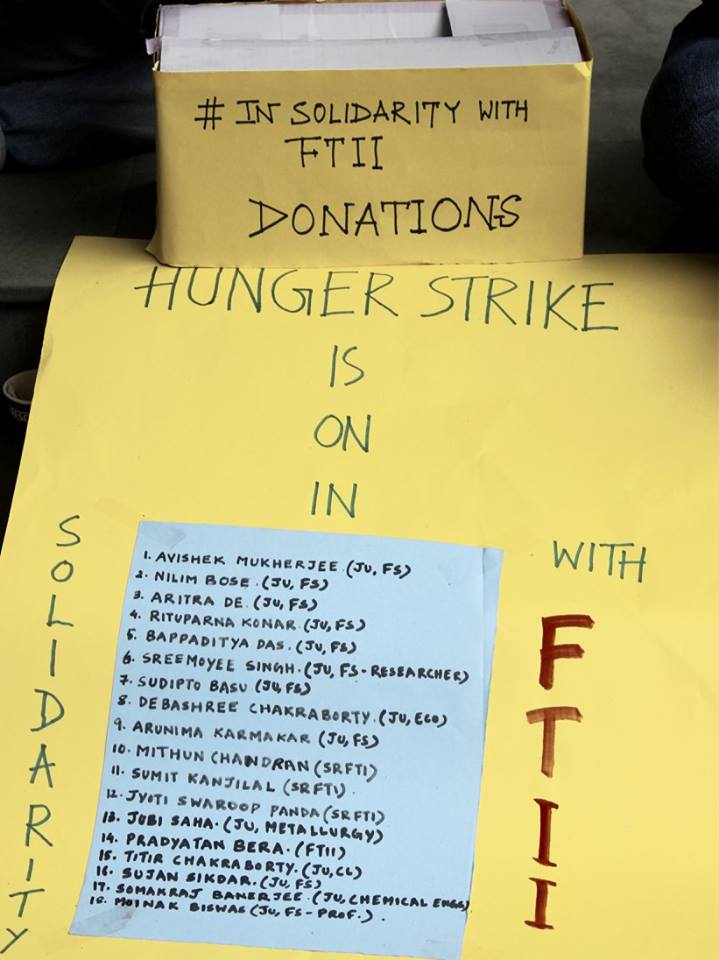 # IN SOLIDARITY WITH
FTII
DONATIONS
HUNGER STRIKE
IS
ON
IN
SOLIDARITY
WITH
FTII
1. AVISHEK MUKHERJEE. (JU, FS)
2. NILIM BOSE. (JU, FS)
3. ARITRA DE. (JU, FS)
4. RITUPARNA KONAR. (JU, FS)
5. BAPPADITYA DAS. (JU, FS)
6. SREEMOYEE SINGH. (JU, FS-RESEARCHER)
7. SUDIPTO BASU (JU, FS)
8. DEBASHREE CHAKRABORTY. (JU, ECO)
9. ARUNIMA KARMAKAR (JU, FS)
10. MITHUN CHANDRAN (SRFTI)
11. SUMIT KANJILAL (SRFTI).
12. JYOTI SWAROOP PANDA (SRFTI)
13. JUBI SAHA. (JU, METALLURGY)
14. PRADYATAN BERA. (FTII)
15. TITIR CHAKRABORTY. (JU, CL)
16. SUJAN SIKDAR. (JU, FS)
17. SOMAKRAJ BANERJEE. (JU, CHEMICAL ENGG)
18. MOINAK BISWAS (JU, FS-PROF.).